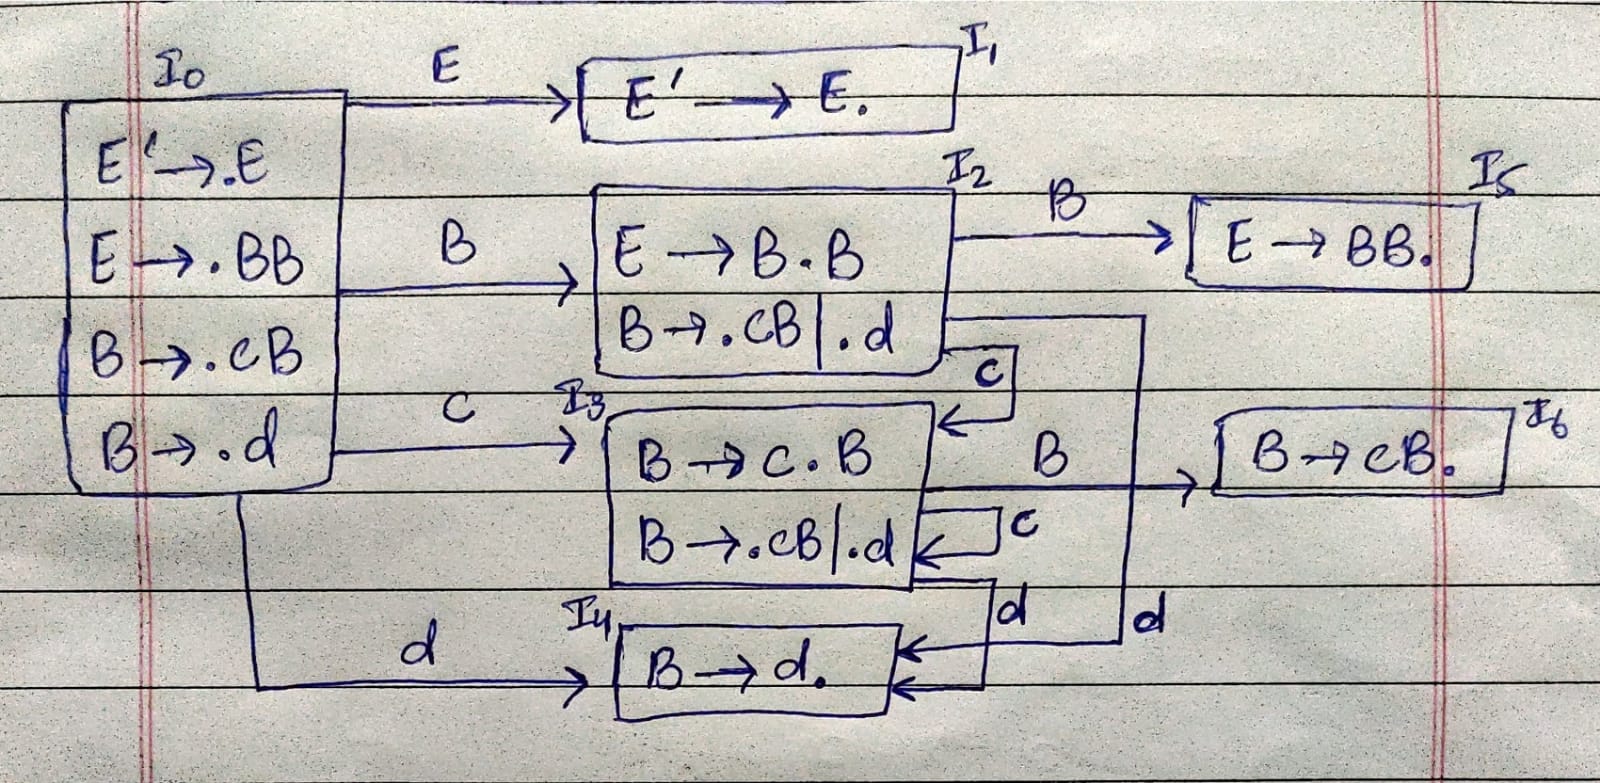 I0
E
I1
E' → E.
E' → .E
E → .BB
B → .cB
B → .d
B
I2
E → B.B
B → .cB | .d
B
I5
E → BB.
c
c
I3
B → c.B
B → .cB | .d
B
I6
B → cB.
c
d
d
d
I4
B → d.